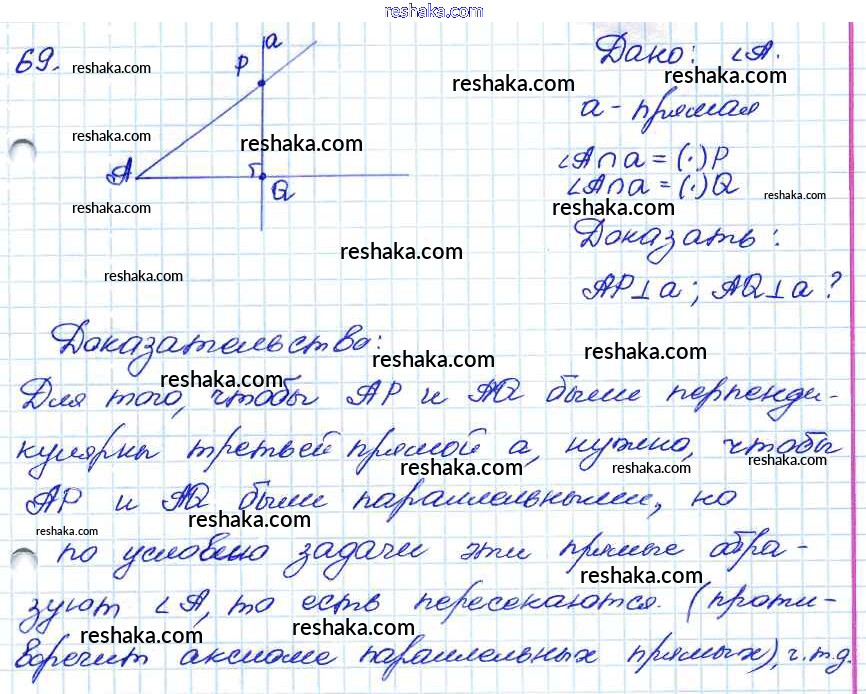 reshaka.com
69.
reshaka.com
a
P
Дано: ∠A.
reshaka.com
reshaka.com
a - прямая
reshaka.com
reshaka.com
∠A∩a = (·)P
A
Q
∠A∩a = (·)Q
reshaka.com
reshaka.com
reshaka.com
Доказать:
reshaka.com
reshaka.com
AP⊥a; AQ⊥a?
Доказательство:
reshaka.com
reshaka.com
reshaka.com
Для того, чтобы AP и AQ были перпенди-
кулярны третьей прямой a, нужно, чтобы
reshaka.com
reshaka.com
reshaka.com
AP и AQ были параллельными, но
reshaka.com
reshaka.com
по условию задачи эти прямые обра-
reshaka.com
зуют ∠A, то есть пересекаются. (проти-
reshaka.com
reshaka.com
воречит аксиоме параллельных прямых), ч.т.д.